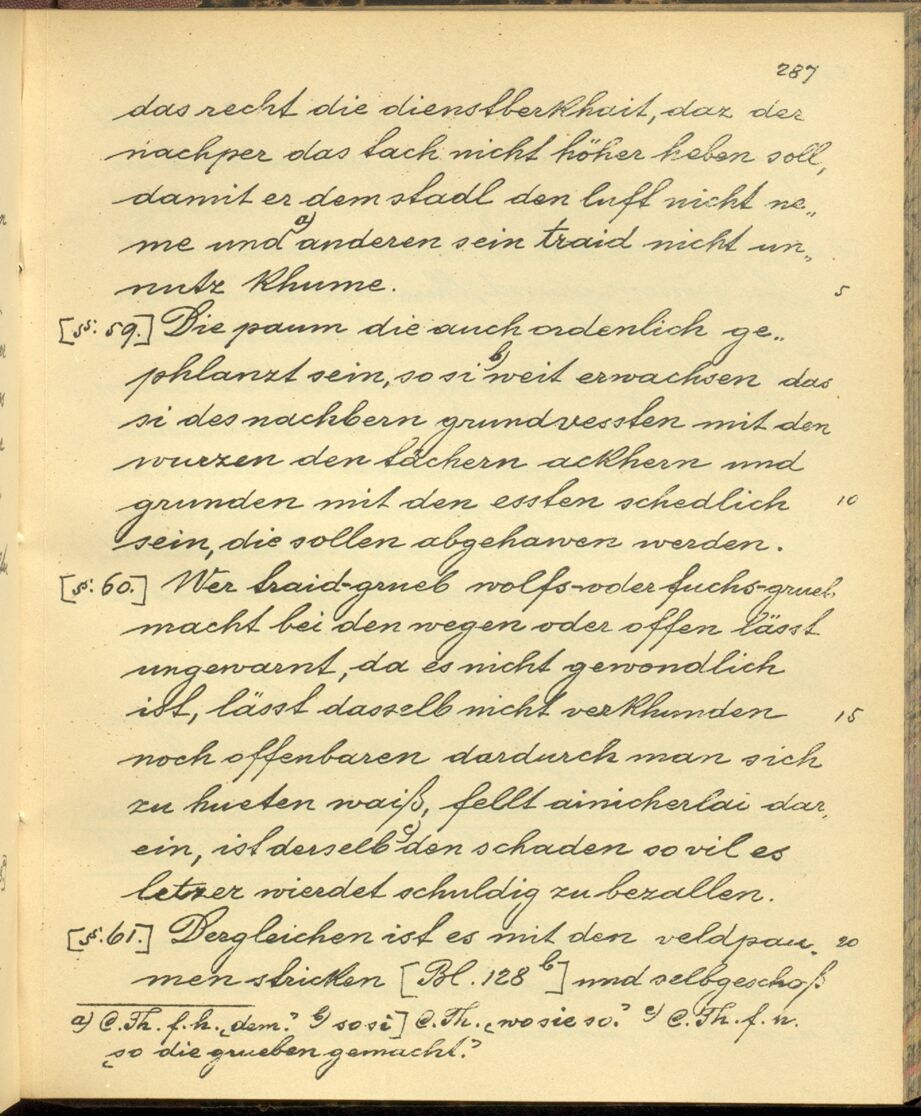 287
das recht die dienstberkhait, daz der
nachper das tach nicht höher heben soll,
damit er dem stadl den luft nicht ne„
me und a) anderen sein traid nicht un„
nutz khume. 5
[§: 59.] Die paum die auch ordenlich ge„
phlanzt sein, so si b) weit erwachsen das
si des nachbern grundvessten mit den
wurzen den tächern ackhern und
grunden mit den essten schedlich 10
sein, die sollen abgehawen werden.
[§: 60.] Wer traid-grueb wolfs- oder fuchs-grueb
macht bei den wegen oder offen lässt
ungewarnt, da es nicht gewondlich
ist, lässt dasselb nicht verkhunden 15
noch offenbaren dardurch man sich
zu hueten waiß, fellt ainicherlai dar„
ein, ist derselb c) den schaden sovil es
letzer wierdet schuldig zu bezallen.
[§. 61.] Dergleichen ist es mit den veldpau„ 20
men stricken [Bl. 128 b] und selbgeschoß
a) C. Th. f. h. „dem.“ b) so si] C. Th. „wo sie so.“ c) C. Th. f. h.
„so die grueben gemacht.“